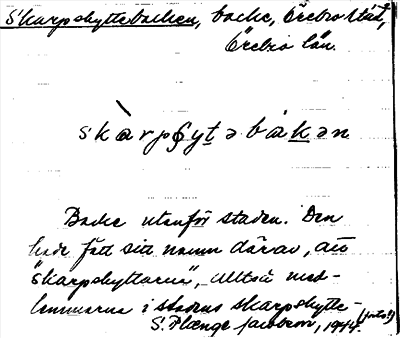 Skarpskyttebacken, backe, Örebro stad,
Örebro län.
skàrpʃytəbakən
Backe utanför staden. Den
hade fått sitt namn därav, att
"skarpskyttarna", alltså med-
lemmarna i stadens skarpskytte-
S. Plænge Jacobson, 1944.